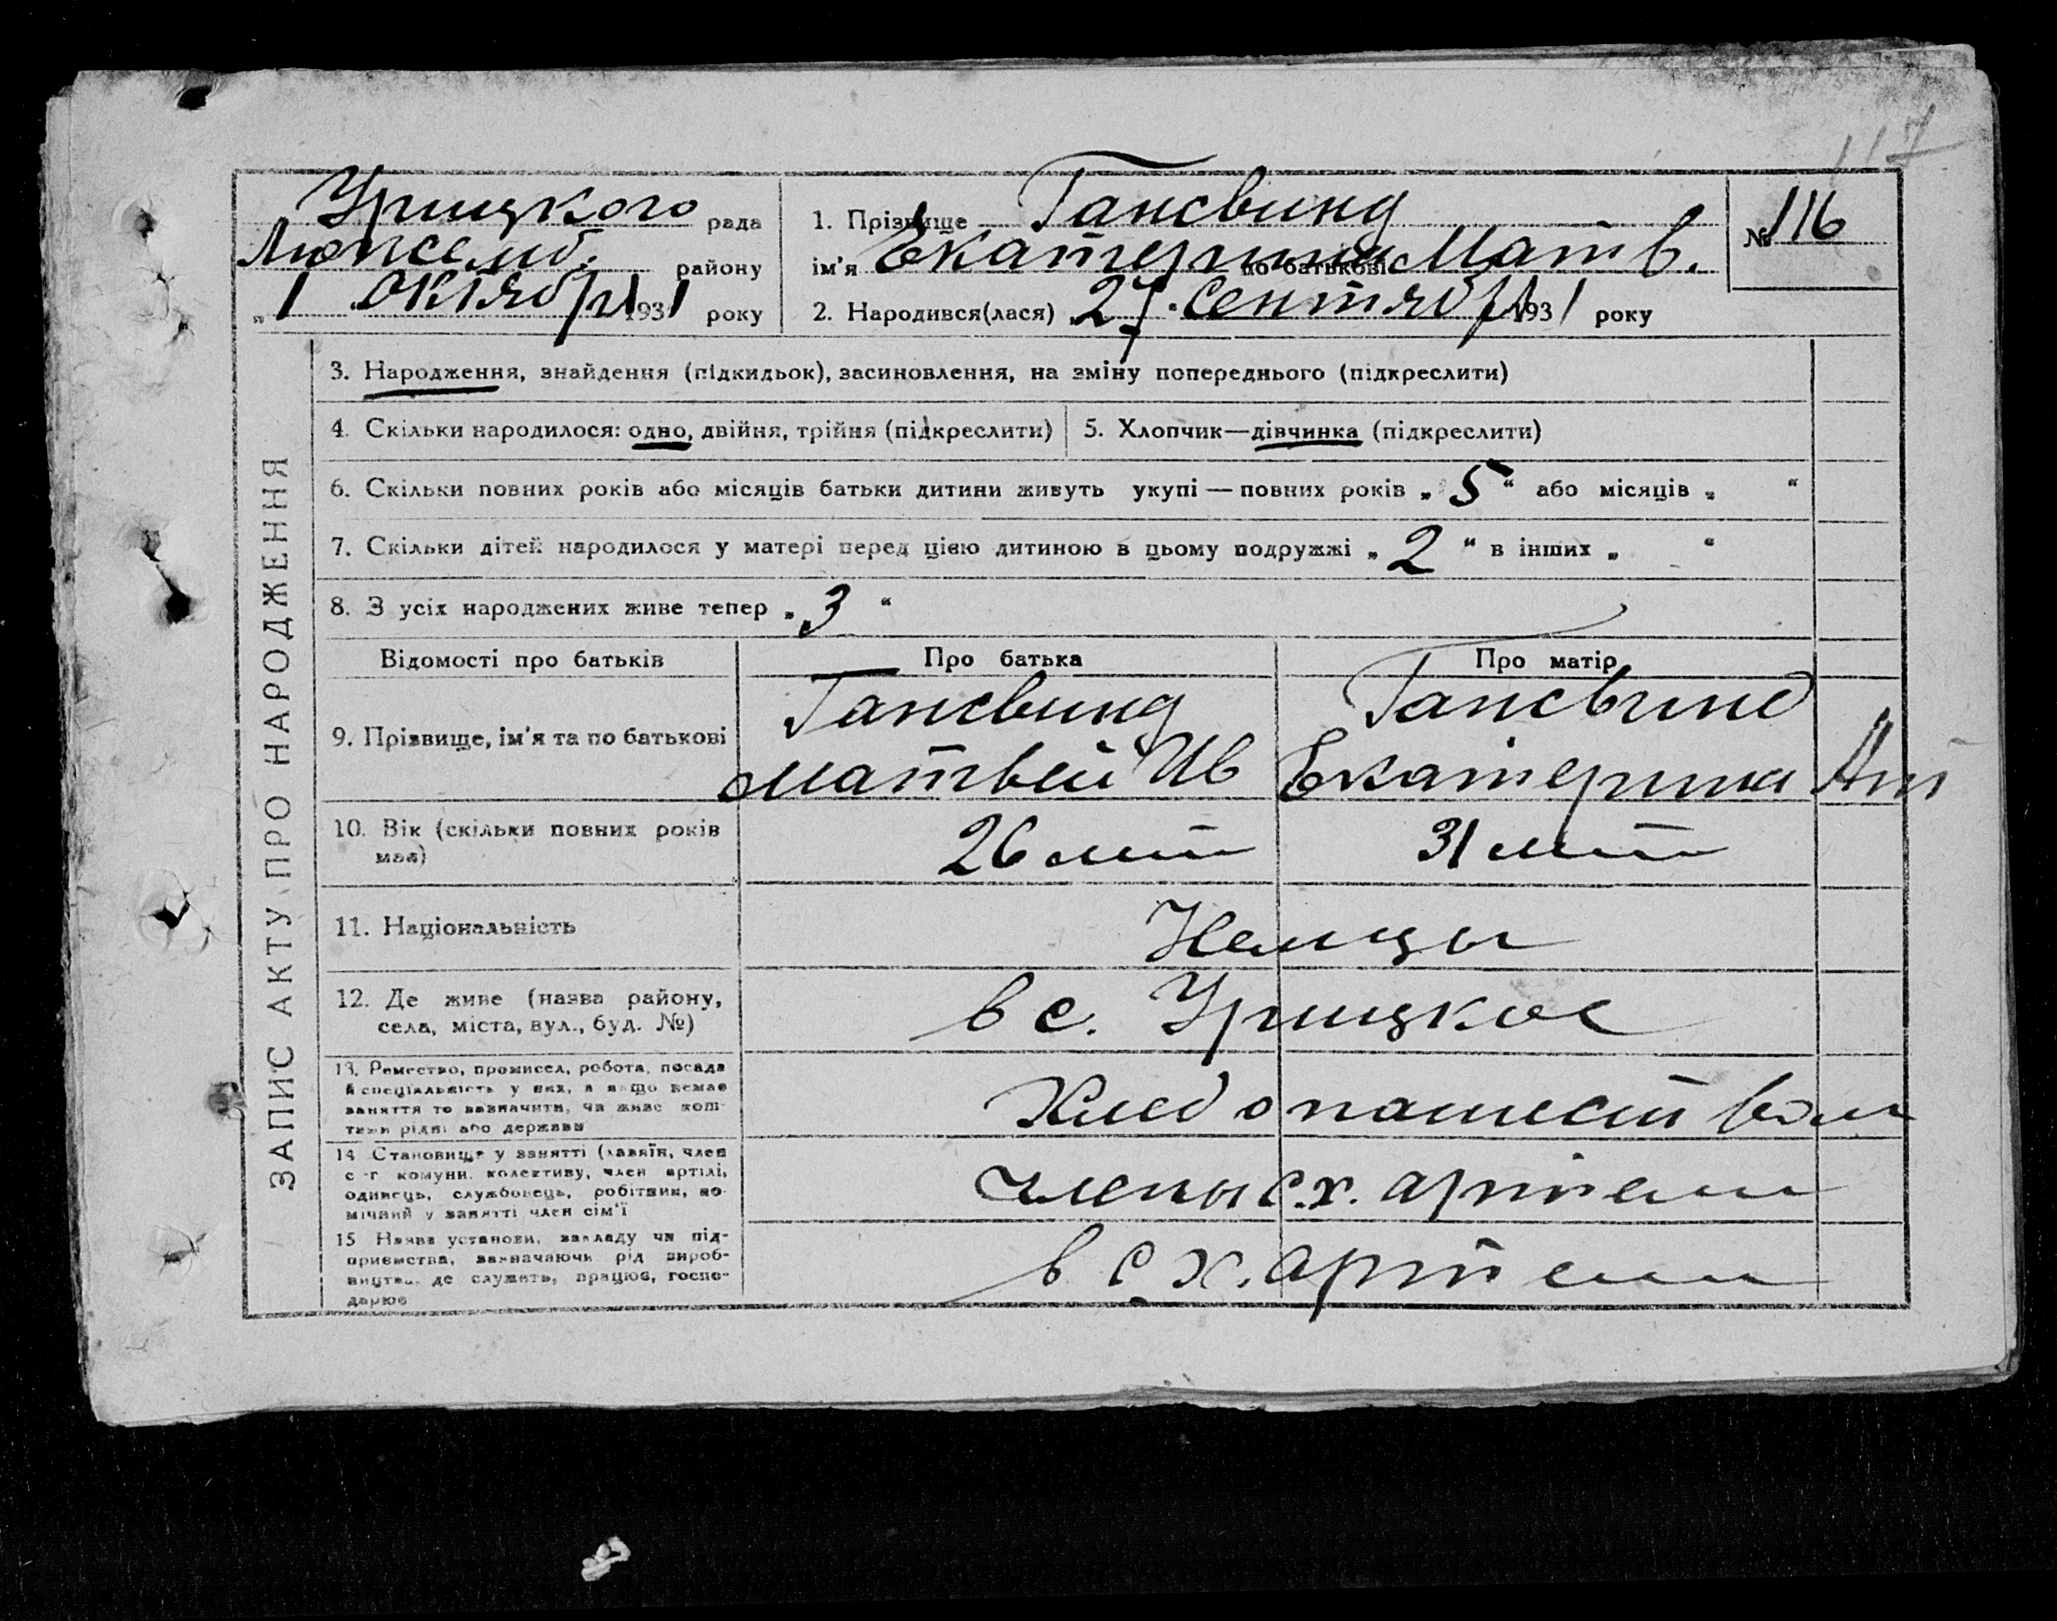 117
Урицкого рада
Люксемб. району
„ 1 " октября 1931 року
1. Прізвище Гансвинд
ім'я Екатерина по батькові Матв.
2. Народився(лася) 27 сентября 1931 року
№ 116
ЗАПИС АКТУ ПРО НАРОДЖЕННЯ
3. Народження, знайдення (підкидьок), засиновлення, на зміну попереднього (підкреслити)
4. Скільки народилося: одно, двійня, трійня (підкреслити)
5. Хлопчик—дівчинка (підкреслити)
6. Скільки повних років або місяців батьки дитини живуть укупі—повних років „ 5 “ або місяців „ “
7. Скільки дітей народилося у матері перед цією дитиною в цьому подружжі „ 2 “ в інших „ “
8. З усіх народжених живе тепер „ 3 “
Відомості про батьків
Про батька
Про матір
9. Прізвище, ім'я та по батькові
Гансвинд
Матвей Ив
Гансвинд
Екатерина Ант
10. Вік (скільки повних років
має)
26 лет
31 лет
11. Національність
Немцы
12. Де живе (назва району,
села, міста, вул., буд. №)
в с. Урицкое
13. Ремество, промисел, робота, посада
й спеціальність у них, а якщо немає
заняття то зазначити, чи живе кош-
тами рідні або держави
Хлебопашеством
14 Становище у занятті (хазяїн, член
с-г комуни, колективу, член артілі,
одинець, службовець, робітник, по-
мічний у занятті член сім'ї
члены с.х. артели
15 Назва установи, закладу чи під-
приємства, зазначаючи рід вироб-
ництва, де служить, працює, госпо-
дарює
в с х. артели